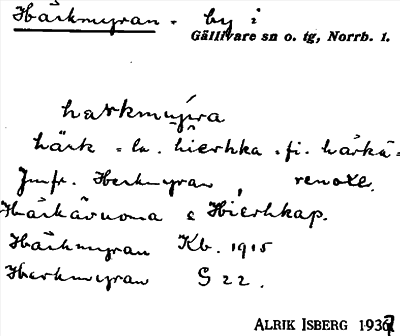 Härkmyran - by i
Gällivare sn o. tg, Norrb. l.
harkmyra
härk = la. hierhka = fi. härkä =
Jmfr. Herkmyran, renoxe.
Härkävuoma & Hierhkap.
Härkmyran Kb. 1915
Herkmyran G 22.
ALRIK ISBERG 1937